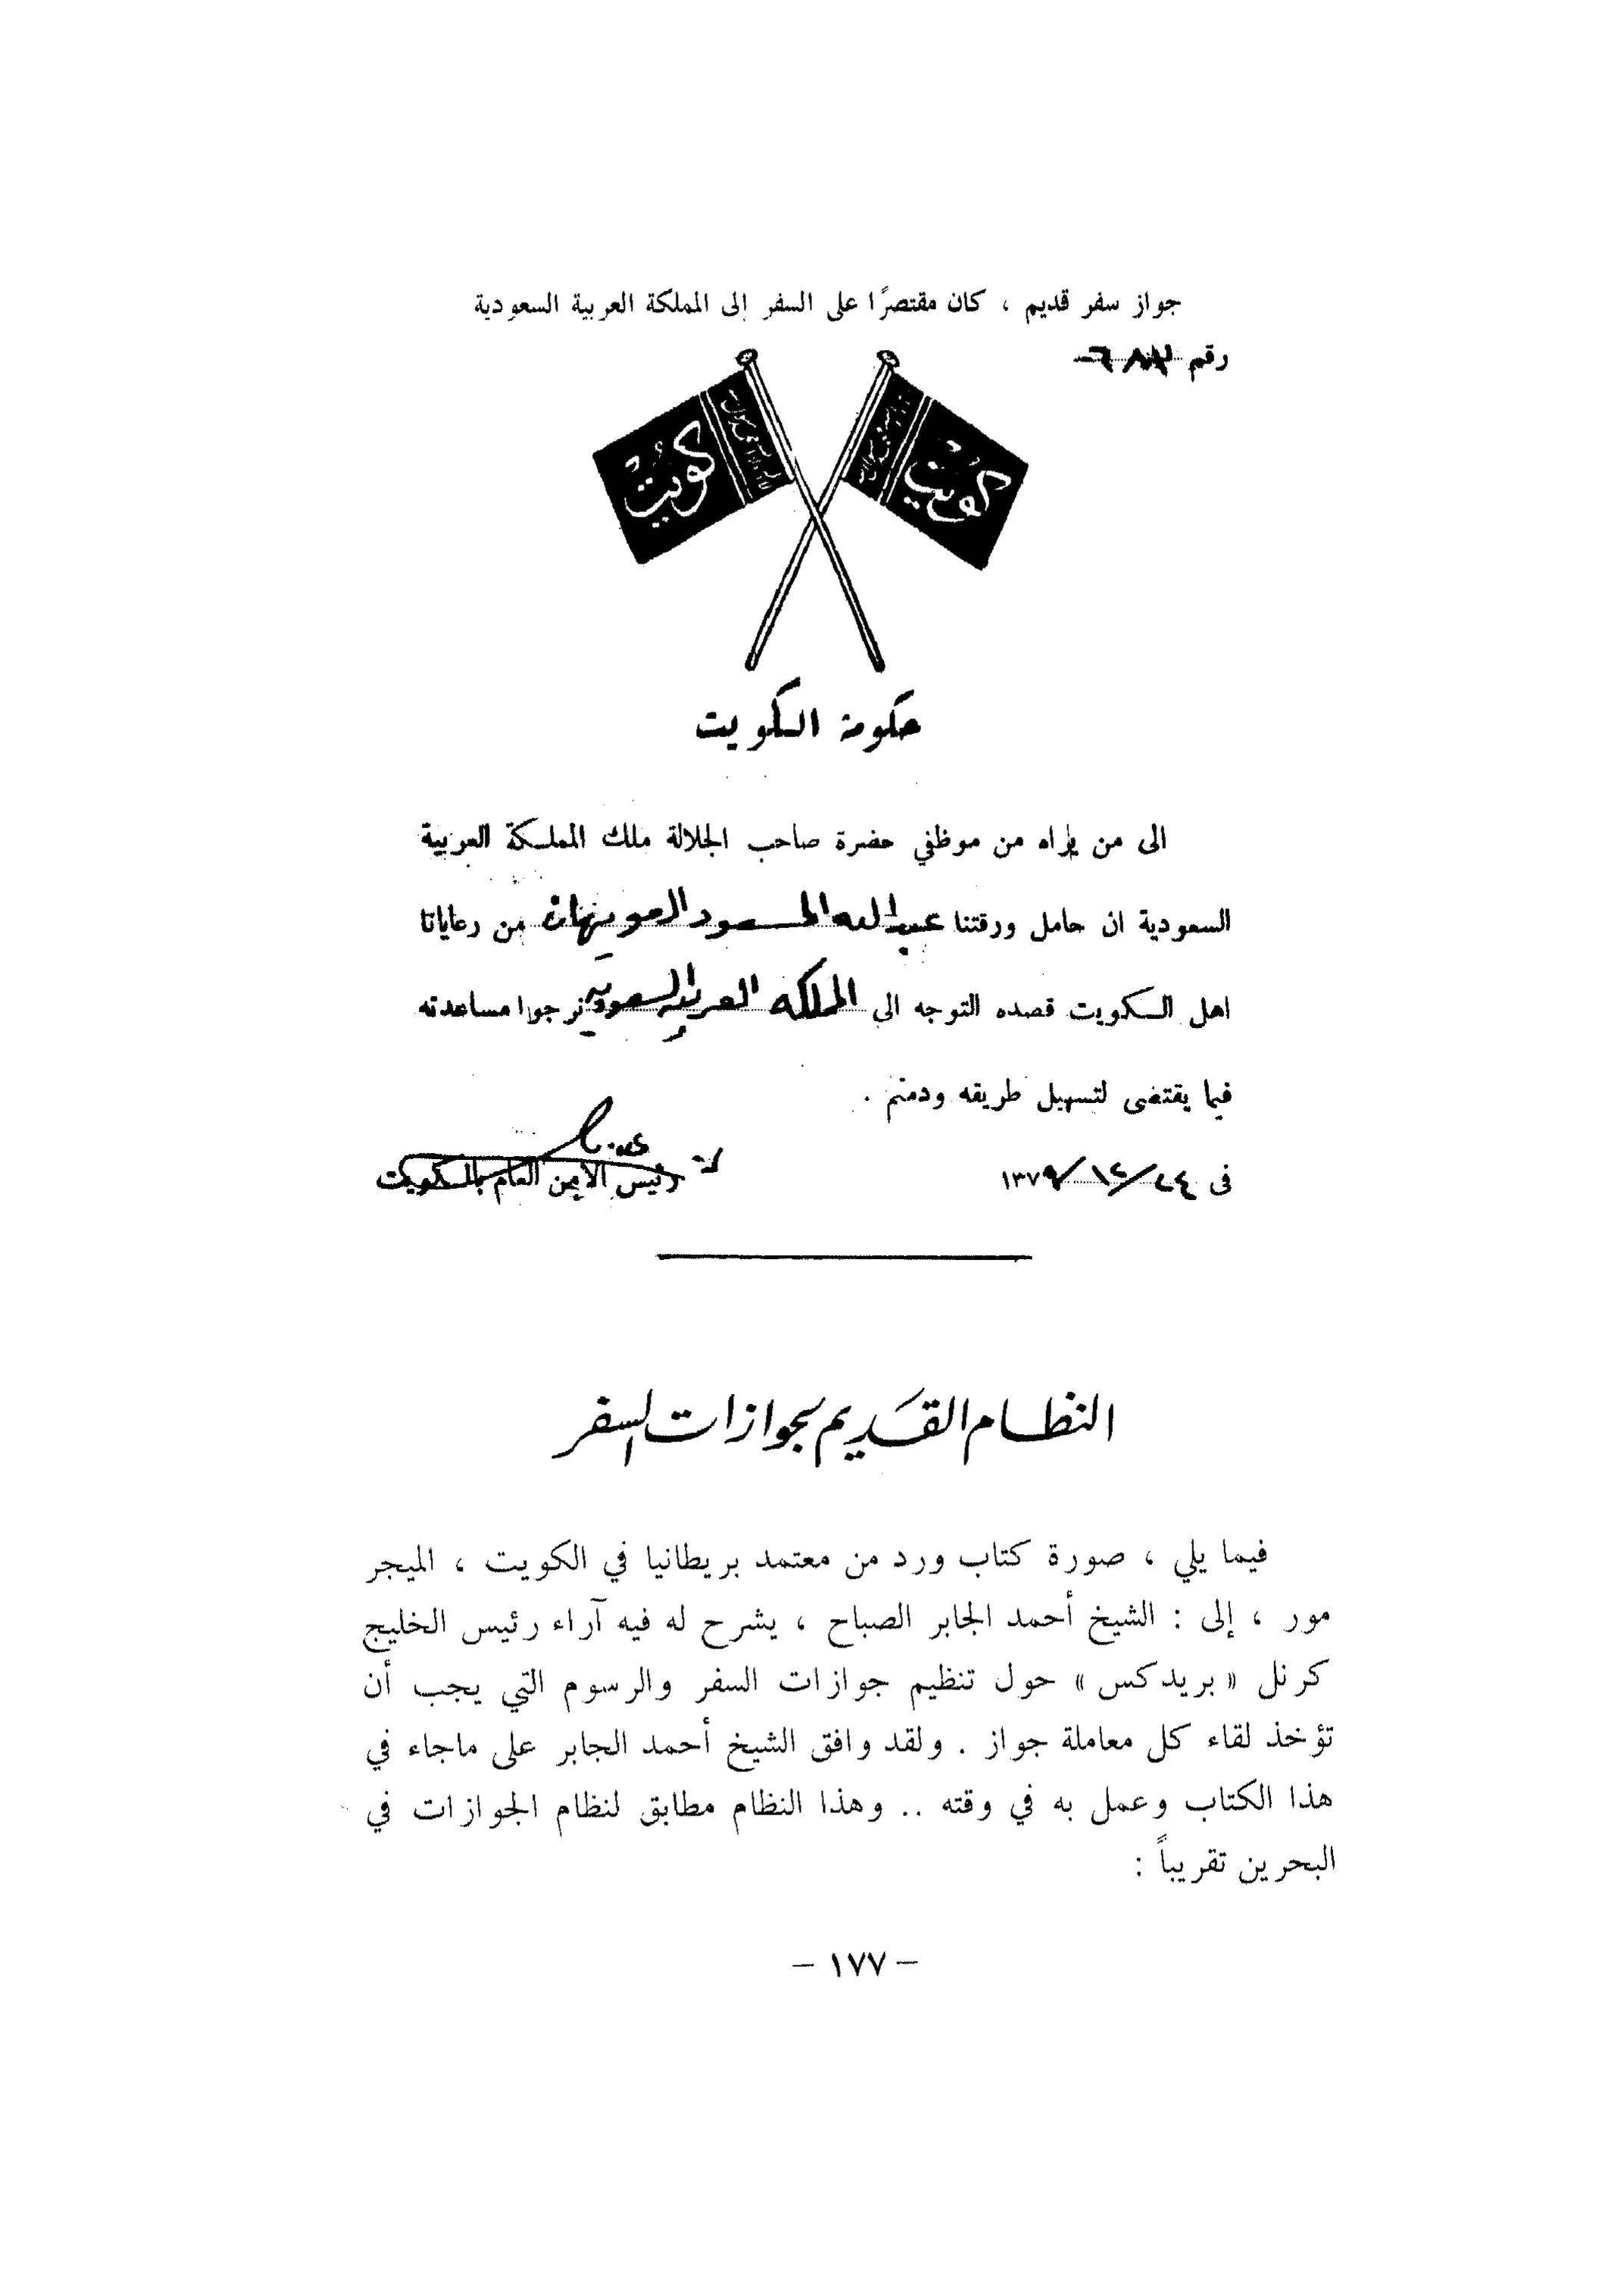 جواز سفر قديم ، كان مقتصرًا على السفر إلى المملكة العربية السعودية
رقم
كويت
كويت
حكومة الكويت
الى من يراه من موظفي حضرة صاحب الجلالة ملك المملكة العربية
السعودية ان حامل ورقتنا عبدالله المسعود العويهان من رعايانا
اهل الكويت قصده التوجه الى المملكه العربيه السعوديه نرجوا مساعدته
فيما يقتضى لتسهيل طريقه ودمتم .
فى ٢٤/١٢/١٣٧٩
رئيس الأمن العام بالكويت
النظام القديم لجوازات السفر
فيما يلي ، صورة كتاب ورد من معتمد بريطانيا في الكويت ، الميجر
مور ، إلى : الشيخ أحمد الجابر الصباح ، يشرح له فيه آراء رئيس الخليج
كرنل « بريدكس » حول تنظيم جوازات السفر والرسوم التي يجب أن
تؤخذ لقاء كل معاملة جواز . ولقد وافق الشيخ أحمد الجابر على ماجاء في
هذا الكتاب وعمل به في وقته .. وهذا النظام مطابق لنظام الجوازات في
البحرين تقريباً :
– ١٧٧ –